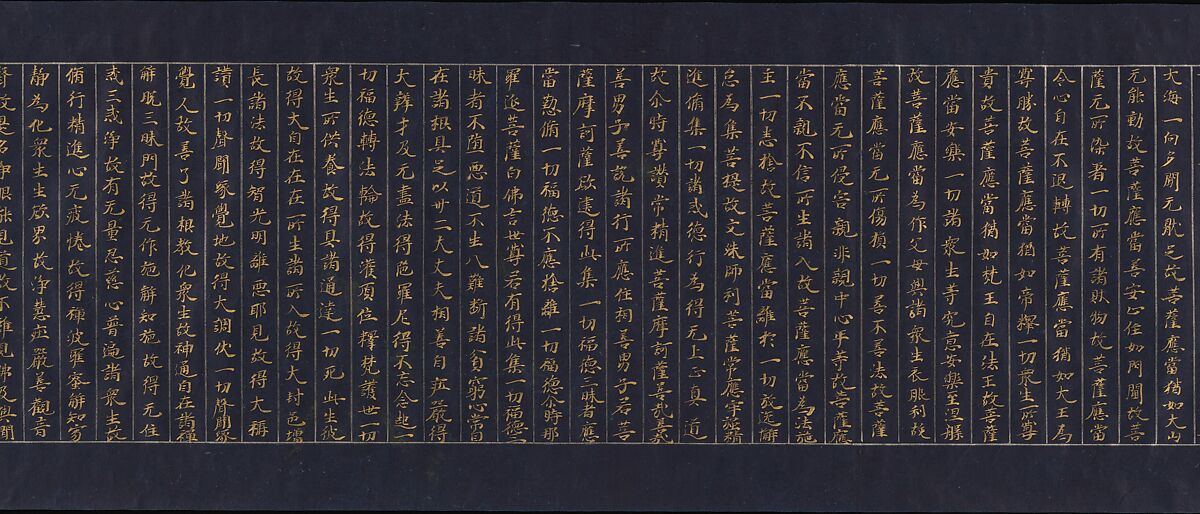 大海一向多聞无猒足故菩薩應當猶如大山
无能動故菩薩應當善安止住如門閫故菩
薩无所染著一切所有諸財物故菩薩應當
令心自在不退轉故菩薩應當猶如大王為
尊勝故菩薩應當猶如帝釋一切衆生所尊
貴故菩薩應當猶如梵王自在法王故菩薩
應當安樂一切諸衆生等究竟安樂至涅槃
故菩薩應當為作父母與諸衆生衣服利故
菩薩應當无所傷損一切善不善法故菩薩
應當无所侵害親非親中心平等故菩薩應
當不親不信所生諸入故菩薩應當為法施
主一切悉捨故菩薩應當離於一切放逸懈
怠為集菩提故文殊師利菩薩常應牢强精
進脩集一切諸惑德行為得无上正真道
故尒時尊讚常精進菩薩摩訶薩善哉善哉
善男子善說諸行所應住相善男子若菩
薩摩訶薩欲逮得此集一切福德三昧者應
當勤脩一切福德不應捨離一切福德尒時那
羅延菩薩白佛言世尊若有得此集一切福德三
昧者不墮惡道不生八難斷諸貧窮心常自
在諸根具足以卅二大丈夫相善自莊嚴得
大辯才及无盡法得陁羅尼得不忘念起一
切福德轉法輪故得灌頂位釋梵護世一切
衆生所供養故得具諸通達一切死此生彼
故得大自在在在所生諸所入故得大封邑增
長諸法故得智光明離惡耶見故得大稱
讚一切聲聞緣覺地故得大調伏一切聲聞緣
覺人故善了諸根教化衆生故神通自在諸禪
解脫三昧門故得元作菀解知施故得元住
戒三戒淨故有元量忍慈心普遍諸衆生故
脩行精進心元疲惓故得禪波羅蜜解知寂
靜為化衆生生欲界故淨慧莊嚴善觀音